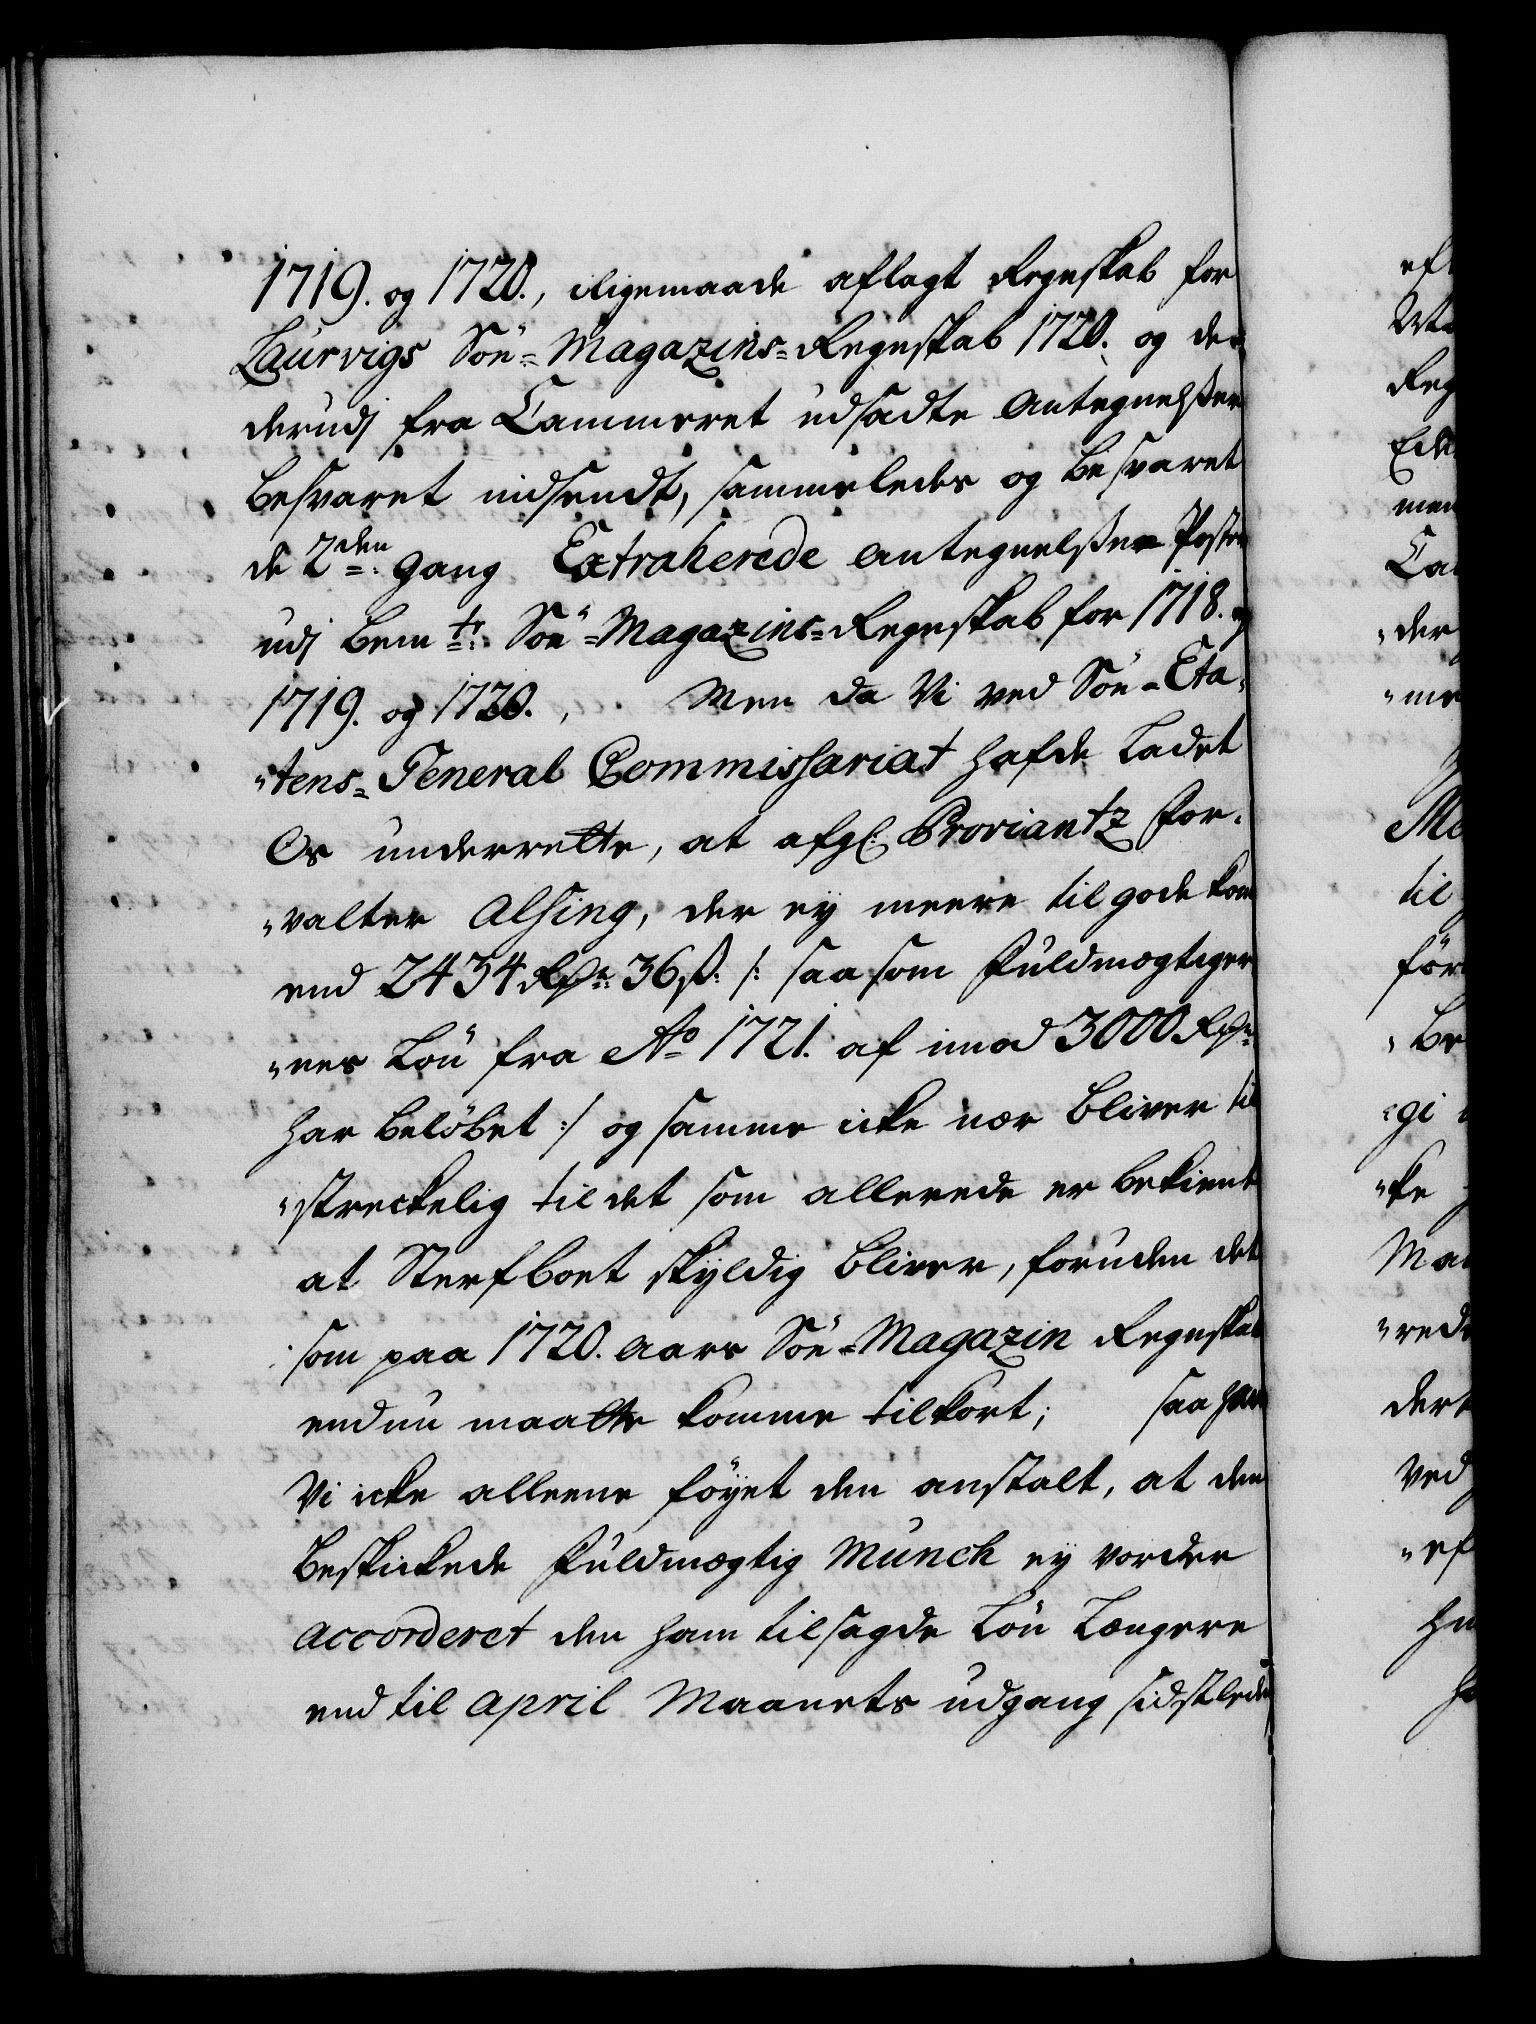 1719. og 1720., iligemaade aflagt Regnskab for
Laurvigs Söe-Magazins-Regnskab 1720. og de
derudj fra Cammeret udsadte Antegnelßer
besvaret indsendt, sammeledes og besvaret
de 2den: Gang Extraherede antegnelßer Poster
udj bemte: Söe-Magazins-Regnskab for 1718. og
1719. og 1720., Men da Vi ved Söe-Eta-
"tens-General Commissariat hafde Ladet
Os underrette, at afgl: Proviantz For-
"valter Alsing, der ey meere til gode kom
end 2434 Rdr: 36 ß: /: saasom Fuldmægtiger
"nes Lön fra Ao 1721. af imod 3000 Rdr:
har beløbet :/ og samme icke nær bliver til
"streckelig til det som allerede er bekient
at Sterfboet skyldig bliver, foruden det
som paa 1720. aars Söe-Magazin Regnskab
endnu maatte komme tilkort; saa have
Vi icke alleene föyet den anstalt, at den
beskickede Fuldmægtig Munch ey vorder
accorderet den ham tilsagde Lön Længere
end til April Maanets udgang sidstleden